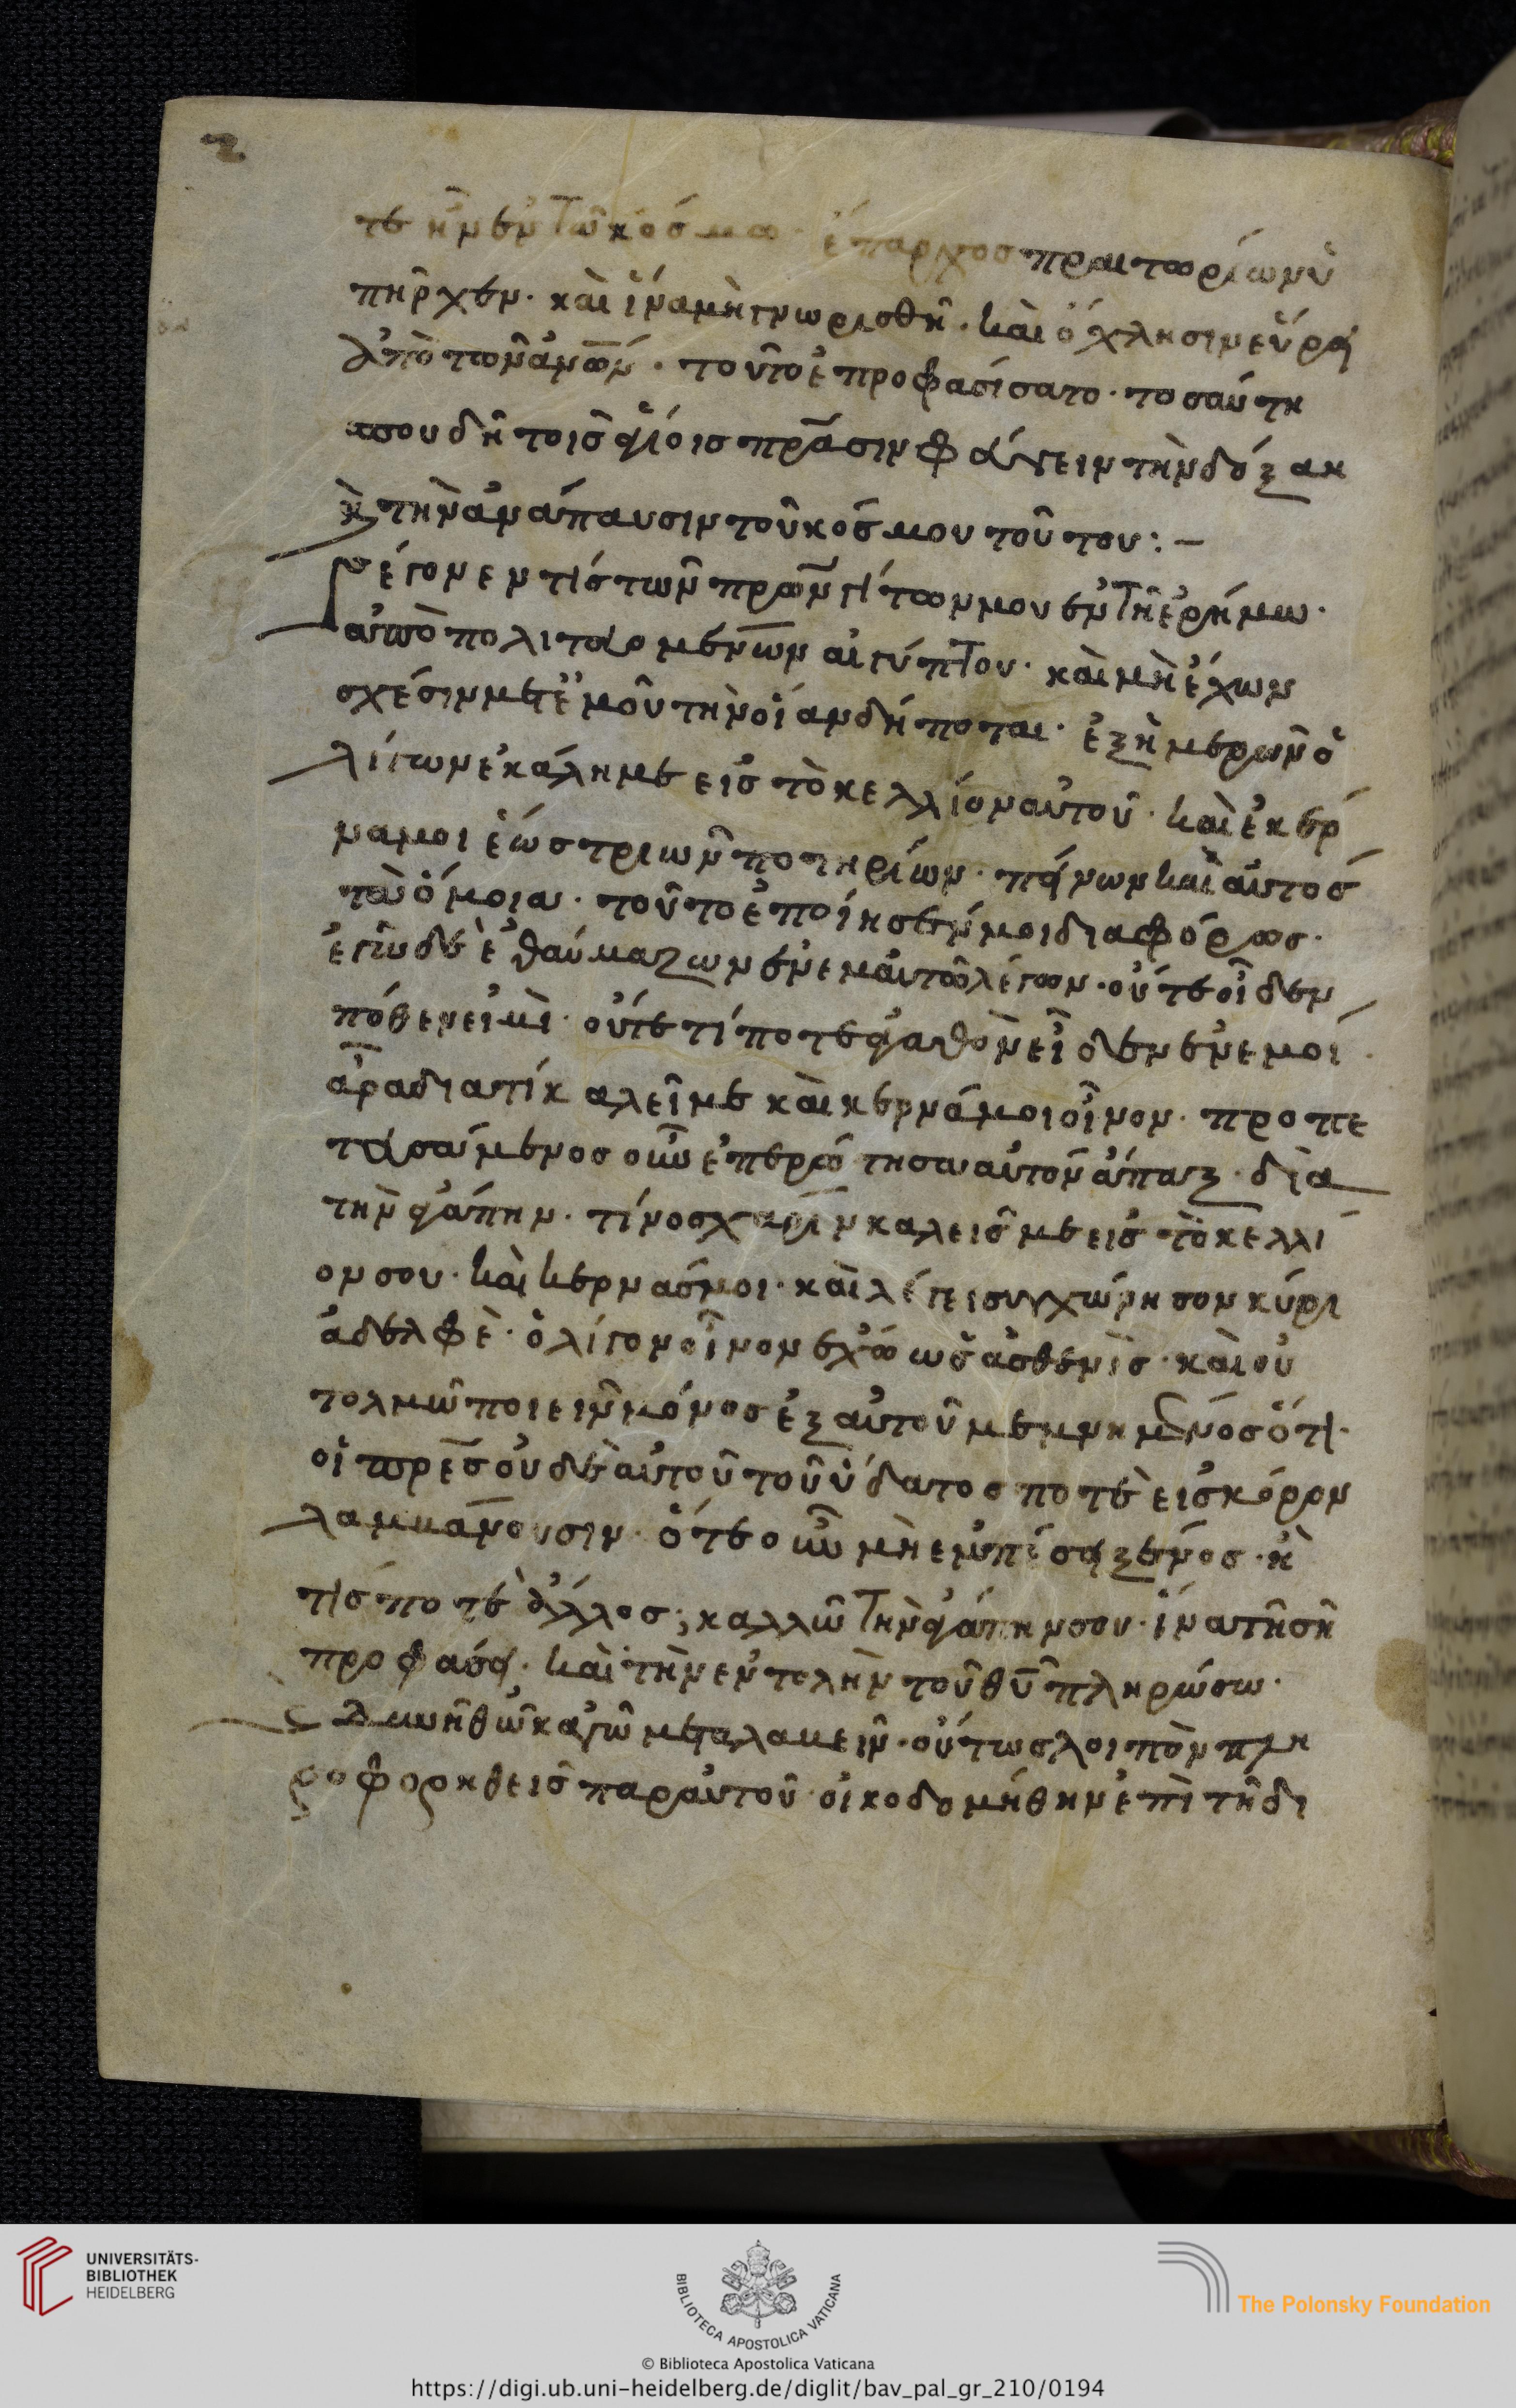 τε ἦν ἐν τῶ κόσμω· ἔπαρχος πραιτωρίων ὑ
πῆρχεν· καὶ ἵνα μὴ γνωρισθῆ· καὶ ὄχλησιν εὕρη
ἀπὸ τῶν ἀνων· τοῦτο ἐπροφασίσατο· τοσαύτη
σπουδὴ τοῖς ἁγίοις πρασιν φεύγειν τὴν δόξαν
κ τὴν ἀνάπαυσιν τοῦ κόσμου τούτου:—
γέγονεν τίς τῶν πρων γίτων μου ἐν τῆ ἐρήμω·
ἀπὸ πολιτευομένων αἰγύπτου· καὶ μὴ ἔχων
σχέσιν μετ' ἐμοῦ τὴν οἵαν δήποται· ἐξ ἡμερῶν ὀ
λίγων ἐκάλη με εἰς τὸ κελλίον αὐτοῦ· καὶ ἐκέρ
να μοι ἕως τριῶν ποτηρίων· πίνων καὶ αὐτὸς
τὰ ὅμοια· τοῦτο ἐποίησέν μοι διαφόρως·
ἐγὼ δὲ ἐθαύμαζων ἐν ἐμαυτῶ λέγων· οὔτε οἶδεν
πόθεν εἰμὶ· οὔτε τί ποτε ἀγαθὸν εἶδεν ἐν ἐμοί·
ἆρα διατί καλεῖ με καὶ κερνᾶ μοι οἶνον· προπε
τευσάμενος οὖν ἐπερώτησα αὐτὸν ἅπαξ· διὰ
τὴν ἀγάπην· τίνος χάριν καλεῖς με εἰς τὸ κελλί
ον σου· καὶ κερνᾶς μοι· καὶ λέγει συγχώρησον κύρι
ἀδελφὲ· ὀλίγον οἶνον ἔχω ὡς ἀσθενὴς· καὶ οὐ
τολμῶ ποιεῖν μόνος ἐξ αὐτοῦ μεμνημένος ὅτι·
οἱ πρες οὐδὲ αὐτοῦ τοῦ ὕδατος ποτὲ εἰς κόρον
λαμβάνουσιν· ὅτε οὖν μὴ ἐμπίση ξένος· κ
τίς ποτὲ ἄλλος; καλλῶ τὴν ἀγάπην σου· ἵνα τῆ σῆ
προφάσει· καὶ τὴν ἐντολὴν τοῦ θυ πληρώσω·
κἀγῶ μεταλαβεῖν· οὕτως λοιπὸν πλη
ροφορηθεὶς παρ' αὐτοῦ· οἰκοδομήθην ἐπὶ τῆ δι
UNIVERSITÄTS-
BIBLIOTHEK
HEIDELBERG
BIBLIOTECA APOSTOLICA VATICANA
The Polonsky Foundation
© Biblioteca Apostolica Vaticana
https://digi.ub.uni-heidelberg.de/diglit/bav_pal_gr_210/0194